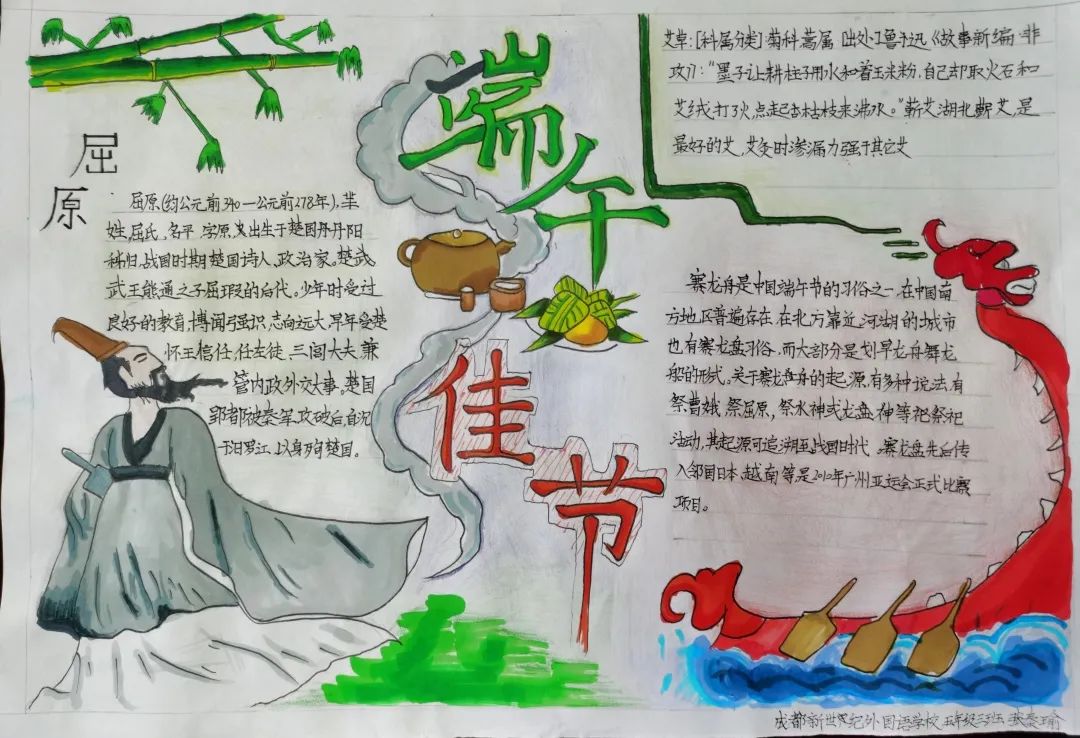 端午
佳节
屈
原
屈原(约公元前340—公元前278年),芈
姓,屈氏,名平,字原,又出生于楚国丹丹阳
秭归,战国时期楚国诗人、政治家。楚武
武王熊通之子屈瑕的后代。少年时受过
良好的教育,博闻强识,志向远大,早年受楚
怀王信任,任左徒、三闾大夫,兼
管内政外交大事。楚国
郢都被秦军攻破后,自沉
于汨罗江,以身殉楚国。
艾草:[科属分类]菊科蒿属 [出处]鲁迅《故事新编·非
攻》:“墨子让耕柱子用水和着玉米粉,自己却取火石和
艾绒,打了火,点起枯枝来沸水。”蕲艾湖北蕲艾,是
最好的艾,艾灸时渗漏力强于其它艾
赛龙舟是中国端午节的习俗之一,在中国南
方地区普遍存在,在北方靠近河湖的城市
也有赛龙盘习俗,而大部分是划旱龙舟舞龙
船的形式。关于赛龙舟的起源,有多种说法,有
祭曹娥,祭屈原,祭水神或龙盘神等祀祭祀
活动,其起源可追溯至战国时代。赛龙盘先后传
入邻国日本、越南等是2010年广州亚运会正式比赛
项目。
成都新世纪外国语学校 五年级三班